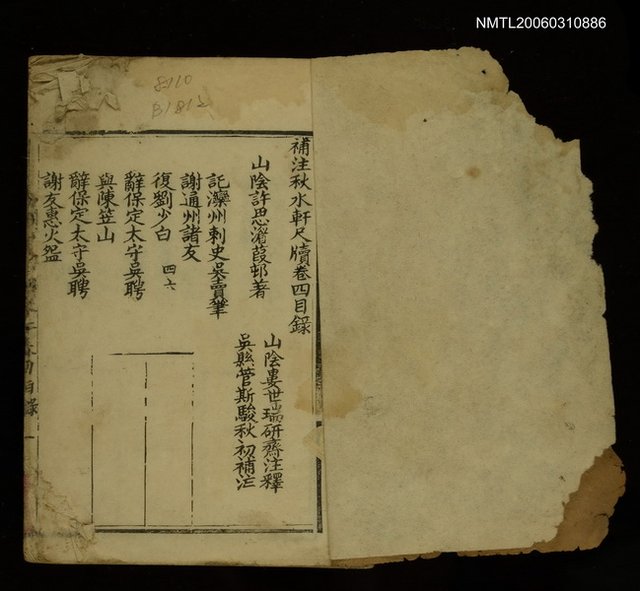 NMTL20060310886
8110
B1812
補注秋水軒尺牘卷四目錄
山陰許思湄葭邨著
山陰婁世瑞研齋注釋
吳縣管斯駿秋初補注
託灤州刺史吳賣筆
謝通州諸友
復劉少白 四六
辭保定太守吳聘
與陳笠山
辭保定太守吳聘
謝友惠火盌
目錄 一